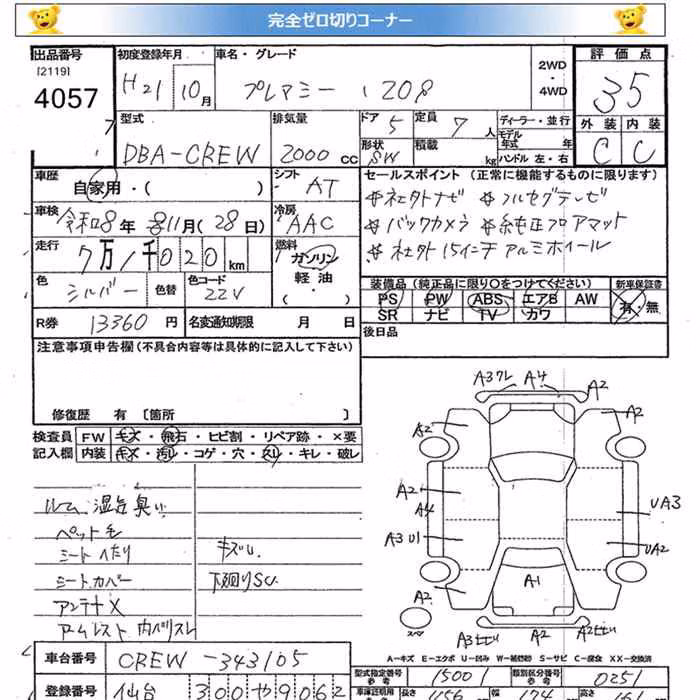 完全ゼロ切りコーナー
出品番号 初度登録年月 車名・グレード 2WD・4WD 評価点
[2119]
4057 H21 10月 プレマシー 20S 3.5
外装 内装
C C
型式 排気量 ドア 定員 ディーラー・並行
DBA-CREW 2000cc 5 7人 モデル年式 年
形状 積載 ハンドル 左・右
SW kg
車歴 シフト セールスポイント (正常に機能するものに限ります)
自家用・( ) AT
#社外ナビ #フルセグテレビ
車検 令和8年 11月(28日) 冷房 AAC
#バックカメラ #純正フロアマット
走行 7万1千020km 燃料 ガソリン
軽油
・( )・
#社外15インチアルミホイール
色 シルバー 色替 色コード 22V
装備品 (純正品に限り〇をつけてください) 新車保証書
PS PW ABS エアB AW 有・無
SR ナビ TV カワ
R券 13360円 名変通知期限 月 日
後日品
注意事項申告欄 (不具合内容等は具体的に記入して下さい)
修復歴 有 [箇所 ]
検査員 FW キズ・飛石・ヒビ割・リペア跡・×要
記入欄 内装 キズ・汚レ・コゲ・穴・スレ・キレ・破レ
ルーム湿気臭い
ペット毛
シートヘたり キズU.
シートカバー 下廻りSU.
アンテナX
アームレスト内ベリスレ
A3ワレ A4 A2
A2 A2
A2
A4 UA3
A3 U1 UA2
A1
A2
スペア
A3 A2 A2
A-キズ E-エクボ U-凹み W-補修跡 S-サビ C-腐食 XX-交換済
車台番号 CREW-343105
型式指定番号 15001 類別区分番号 0251
登録番号 仙台 300 や 9062
長さ 幅 高さ